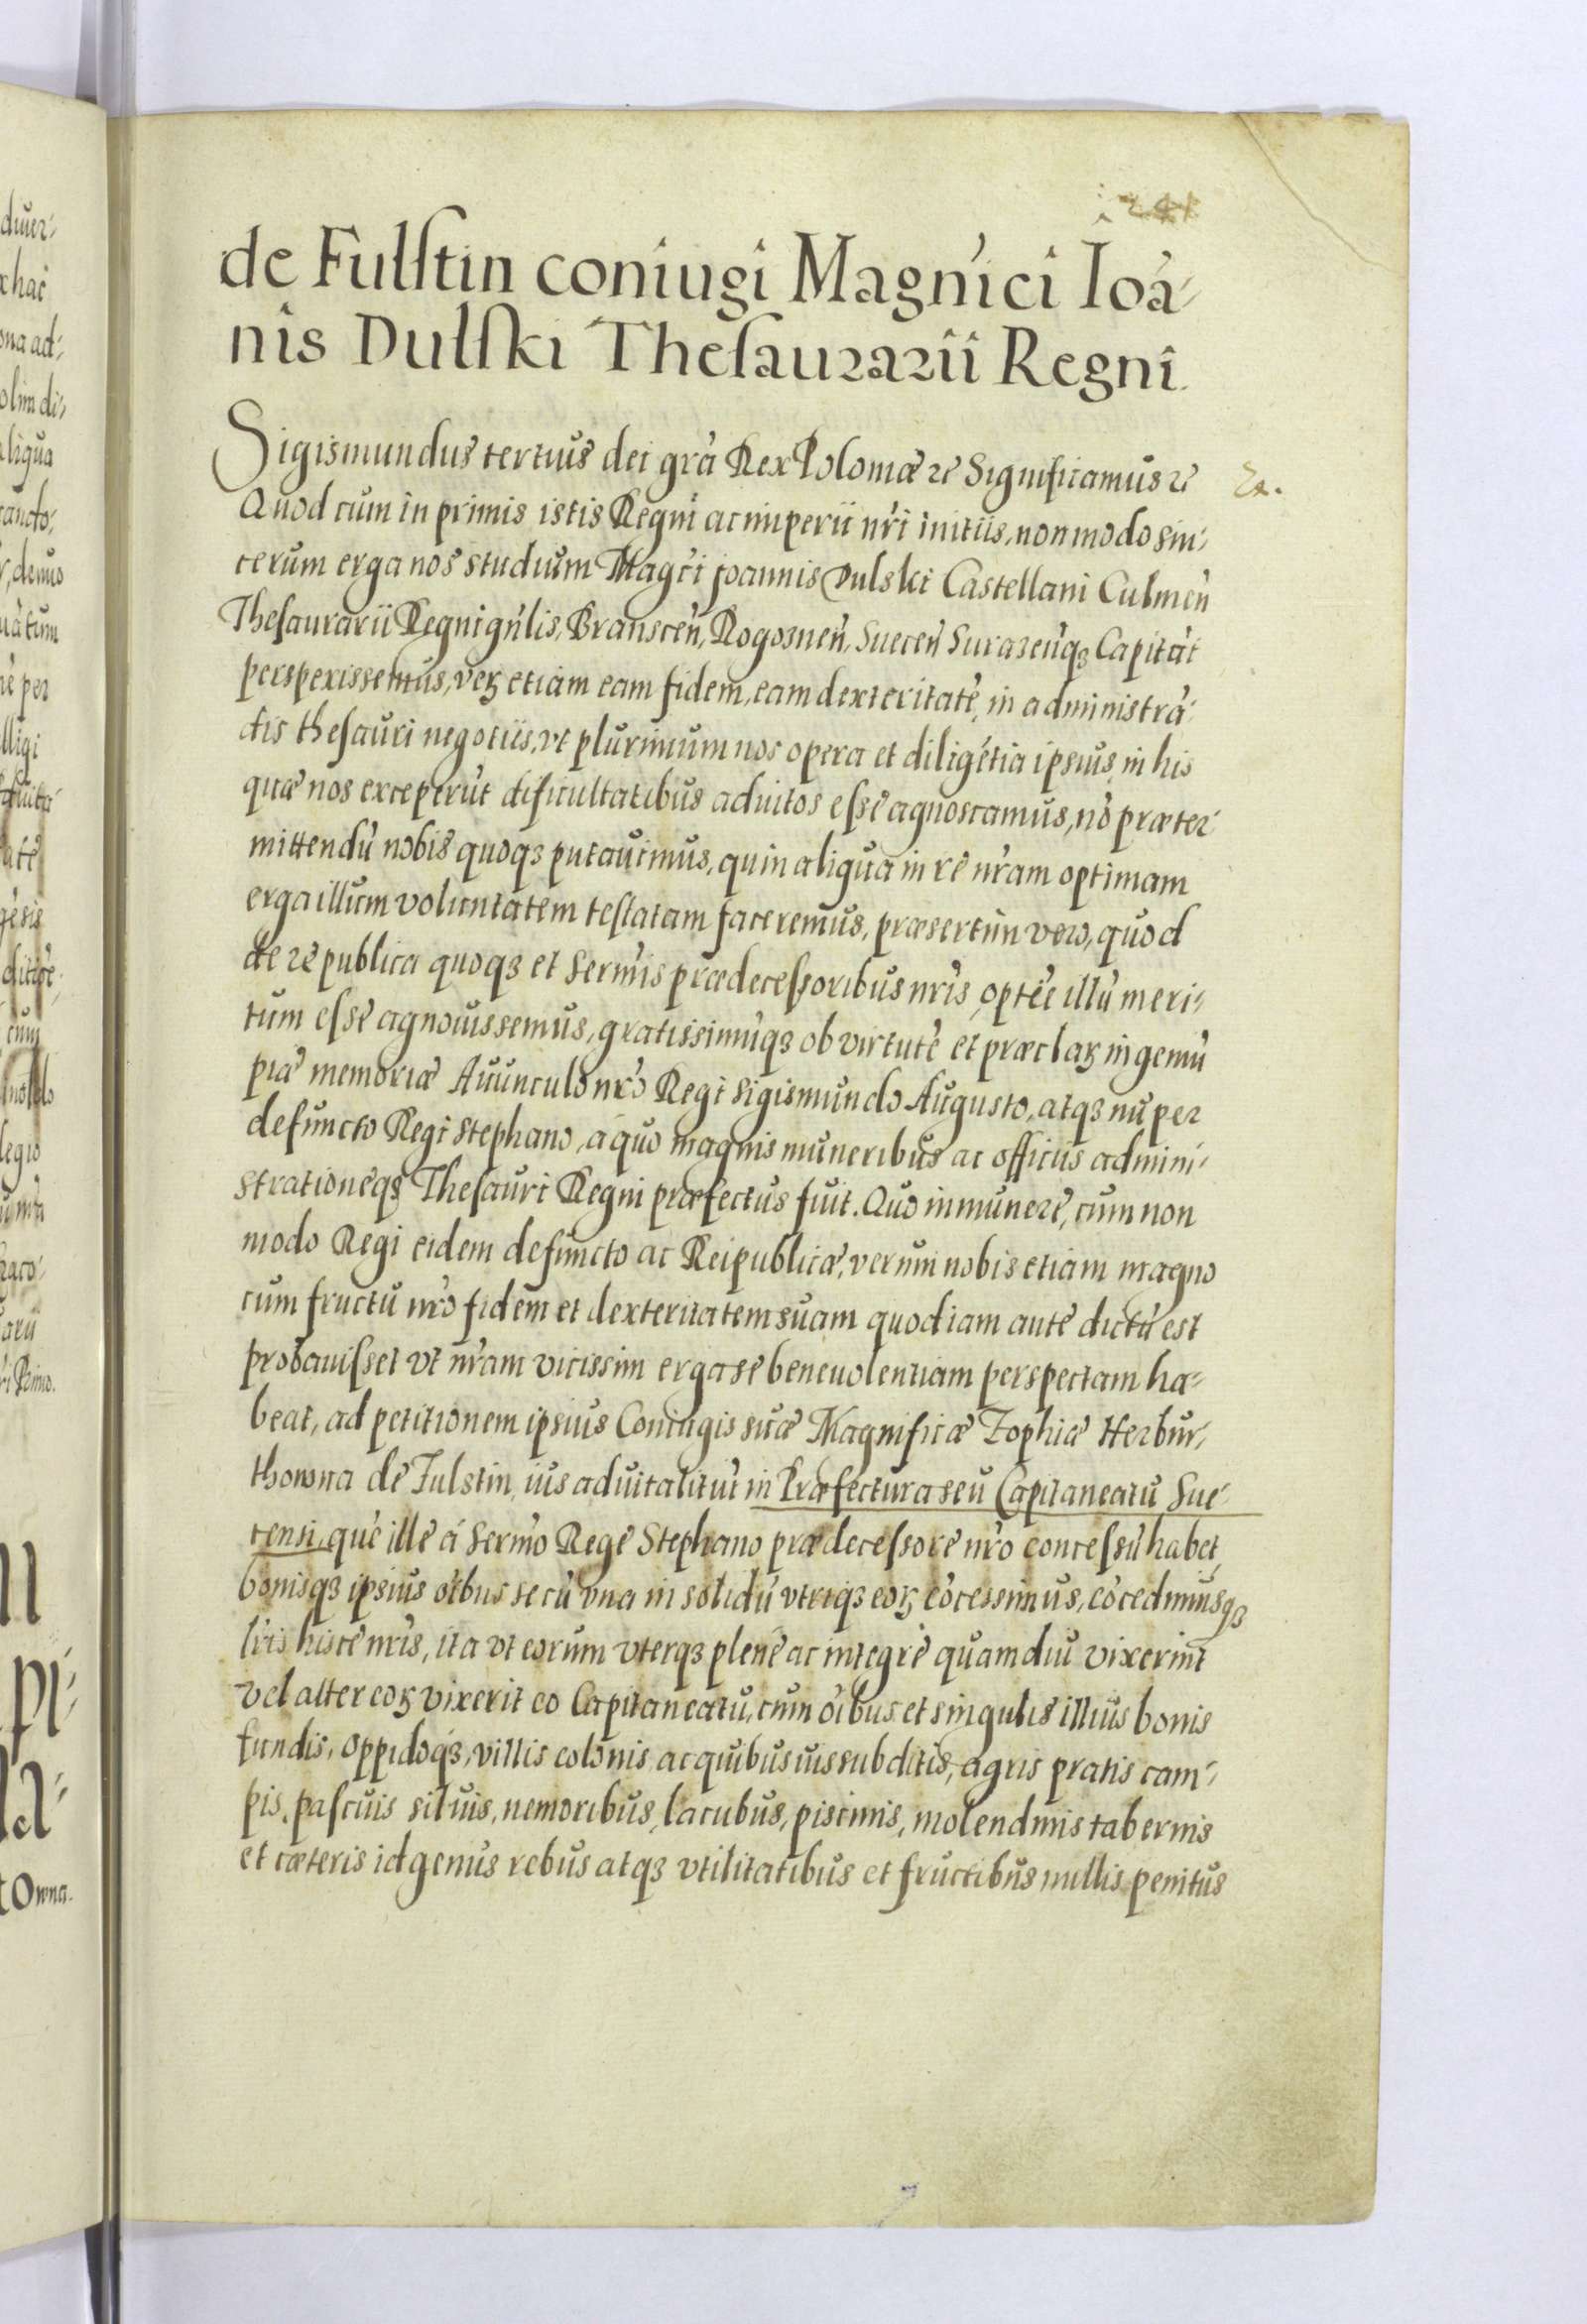 de Fulstin coniugi Magn'ici Ioã-
nis Dulski Thesaurarii Regni.
Sigismundus tertius dei grã Rex Poloniæ &c Significamus &c
Quod cum in primis istis Regni ac imperii nr̃i initiis, non modo sin-
cerum erga nos studium Magc̃i Joannis Dulski Castellani Culmeñ
Thesaurarii Regni gñlis, Bransceñ, Rogozneñ, Sueceñ Surazeñqȝ Capitãt
perspexissemus, veꝝ etiam eam fidem, eam dexteritatẽ, in administrã-
dis thesauri negotiis, vt plurimum nos opera et diligẽtia ipsius, in his
quæ nos exceperũt dificultatibus adiutos esse agnoscamus, nõ præter-
mittendũ nobis quoqȝ putauimus, quin aliqua in re nr̃am optimam
erga illum voluntatem testatam faceremus, præsertim vero, quod
de re publica quoqȝ et Serm̃is prædecessoribus nr̃is, optĕ illũ meri-
tum esse agnouissemus, gratissimũqȝ ob virtutẽ et præclaꝝ ingeniũ
piæ memoriæ Auunculo nr̃o Regi Sigismundo Augusto, atqȝ nuper
defuncto Regi Stephano, a quo magnis muneribus ac officiis admini-
strationeqȝ Thesauri Regni præfectus fuit. Quo in munere, cum non
modo Regi eidem defuncto ac Reipublicæ, verum nobis etiam magno
cum fructu nr̃o fidem et dexteritatem suam quod iam ante dictũ est
probauisset vt nr̃am vicissim erga se beneuolentiam perspectam ha-
beat, ad petitionem ipsius Coniugis suæ Magnificæ Zophiæ Herbur-
thowna de Fulstin, ius aduitalitiũ in Præfectura seu Capitaneatu Sue-
censi, quẽ ille á Serm̃o Rege Stephano prædecessore nr̃o concessũ habet,
bonisqȝ ipsius oĩbus secũ vna in solidũ vtriqȝ eoꝝ cõcessimus, cõcedimusqȝ
lr̃is hisce nr̃is, ita vt eorum vterqȝ plene ac integrè quamdiu vixerint
vel alter eoꝝ vixerit eo Capitaneatu, cum oĩbus et singulis illius bonis
fundis, oppidoqȝ, villis colonis ac quibusuis subditis, agris pratis cam-
pis, pascuis siluis, nemoribus, lacubus, piscinis, molendinis tabernis
et cæteris id genus rebus atqȝ vtilitatibus et fructibus nullis penitus